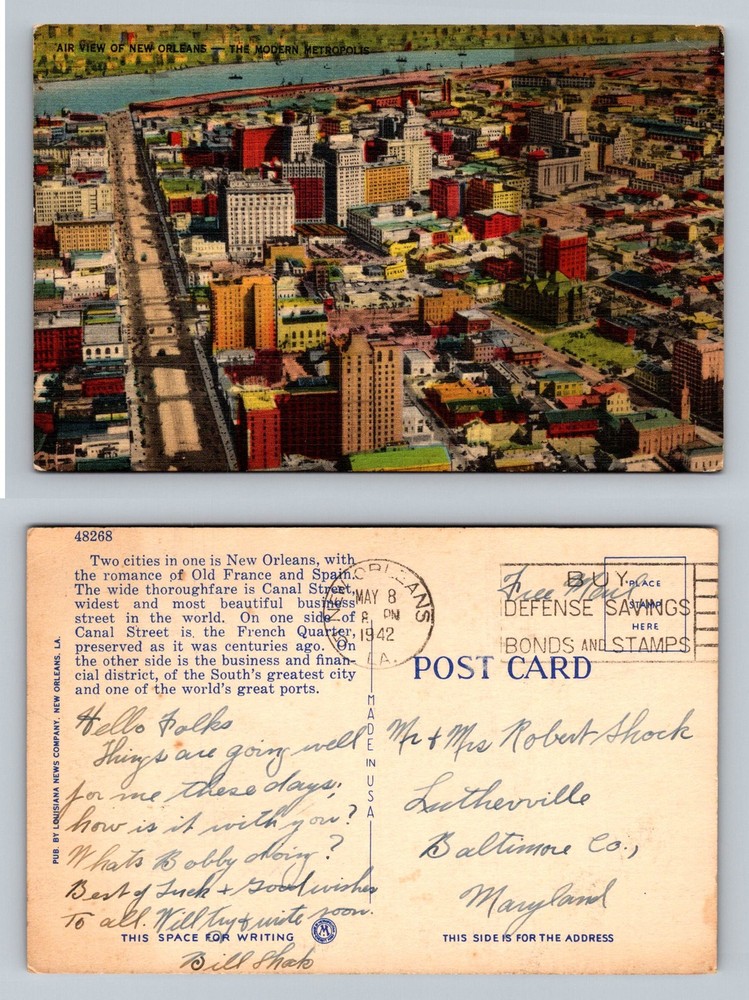 AIR VIEW OF NEW ORLEANS — THE MODERN METROPOLIS
48268
Two cities in one is New Orleans, with
the romance of Old France and Spain.
The wide thoroughfare is Canal Street,
widest and most beautiful business
street in the world. On one side of
Canal Street is the French Quarter,
preserved as it was centuries ago. On
the other side is the business and finan-
cial district, of the South's greatest city
and one of the world's great ports.
NEW ORLEANS
MAY 8
8 PM
1942
LA.
Free Mail
BUY
DEFENSE SAVINGS
BONDS AND STAMPS
PLACE
STAMP
HERE
POST CARD
PUB. BY LOUISIANA NEWS COMPANY, NEW ORLEANS, LA.
MADE IN USA
Hello Folks
Things are going well
for me these days;
how is it with you?
Whats Bobby doing?
Best of Luck + Good wishes
To all. Will try & write soon.
Bill
Mr + Mrs Robert Shock
Lutherville
Baltimore Co.,
Maryland
THIS SPACE FOR WRITING
M
THIS SIDE IS FOR THE ADDRESS